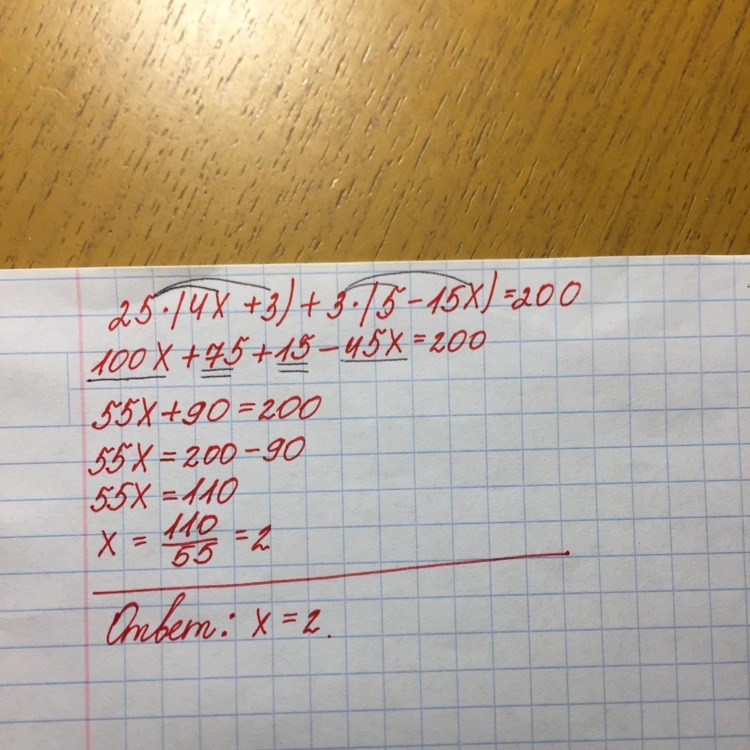 25·(4x+3)+3·(5-15x)=200
100x+75+15-45x=200
55x+90=200
55x=200-90
55x=110
x = 110/55 = 2
Ответ: x=2.